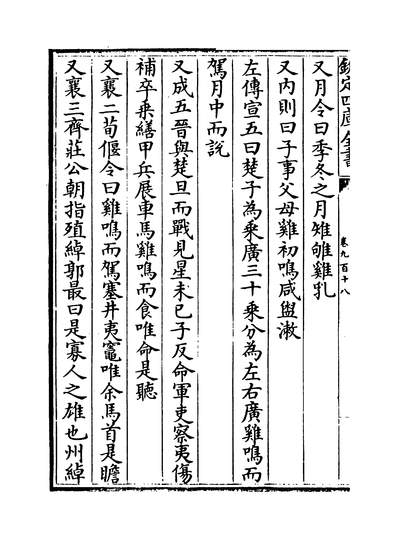 欽定四庫全書
卷九百十八
又月令曰季冬之月雉雊雞乳
又内則曰子事父母雞初鳴咸盥漱
左傳宣五曰楚子為乘廣三十乘分為左右廣雞鳴而
駕月中而說
又成五晉與楚旦而戰見星未已子反命軍吏察夷傷
補卒乘繕甲兵展車馬雞鳴而食唯命是聽
又襄二荀偃令曰雞鳴而駕塞井夷竈唯余馬首是瞻
又襄三齊莊公朝指殖綽郭最曰是寡人之雄也州綽